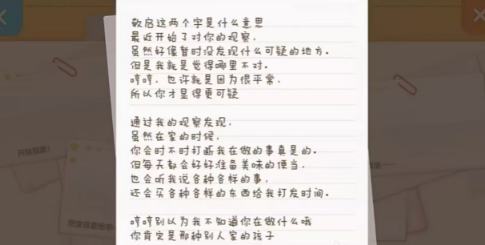 敬启这两个字是什么意思
最近开始了对你的观察,
虽然好像暂时没发现什么可疑的地方。
但是我就是觉得哪里不对。
哼哼,也许就是因为很平常,
所以你才显得更可疑
通过我的观察发现,
虽然在家的时候,
你会时不时打断我在做的事真是的。
但每天都会好好准备美味的便当,
也会听我说各种各样的事,
还会买各种各样的东西给我打发时间。
哼哼别以为我不知道你在做什么哦
你肯定是那种别人家的孩子